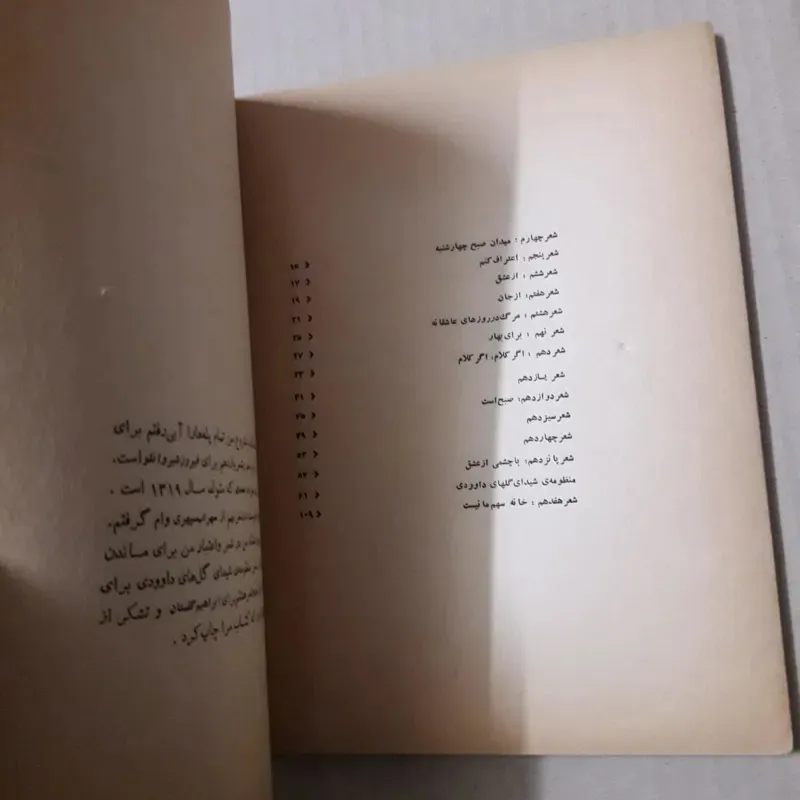 شعر چهارم : میدان صبح چهارشنبه
شعر پنجم : اعتراف کنم ۱۷
شعر ششم : از عشق ۱۹
شعر هفتم : از جان ۲۱
شعر هشتم : مرگ در روزهای عاشقانه ۲۵
شعر نهم : برای بهار ۲۷
شعر دهم : اگر کلام، اگر کلام ۳۳
شعر یازدهم ۴۱
شعر دوازدهم : صبح است ۴۵
شعر سیزدهم ۴۹
شعر چهاردهم ۵۳
شعر پانزدهم : با چشمی از عشق
منظومه‌ی شیدای گلهای داوودی ۶۱
شعر هفدهم : خانه سهم ما نیست ۱۰۹
من تمام پله‌ها را آبی رفتم برای
یازدهم برای فیروز شیروانلو است.
که متولد سال ۱۳۱۹ است .
از مهراب سپهری وام گرفتم.
در شعر و اشعار من برای ماندن
منظومه‌ی شیدای گل‌های داوودی برای
برای ابراهیم گلستان و تشکر از
که کتاب مرا چاپ کرد .